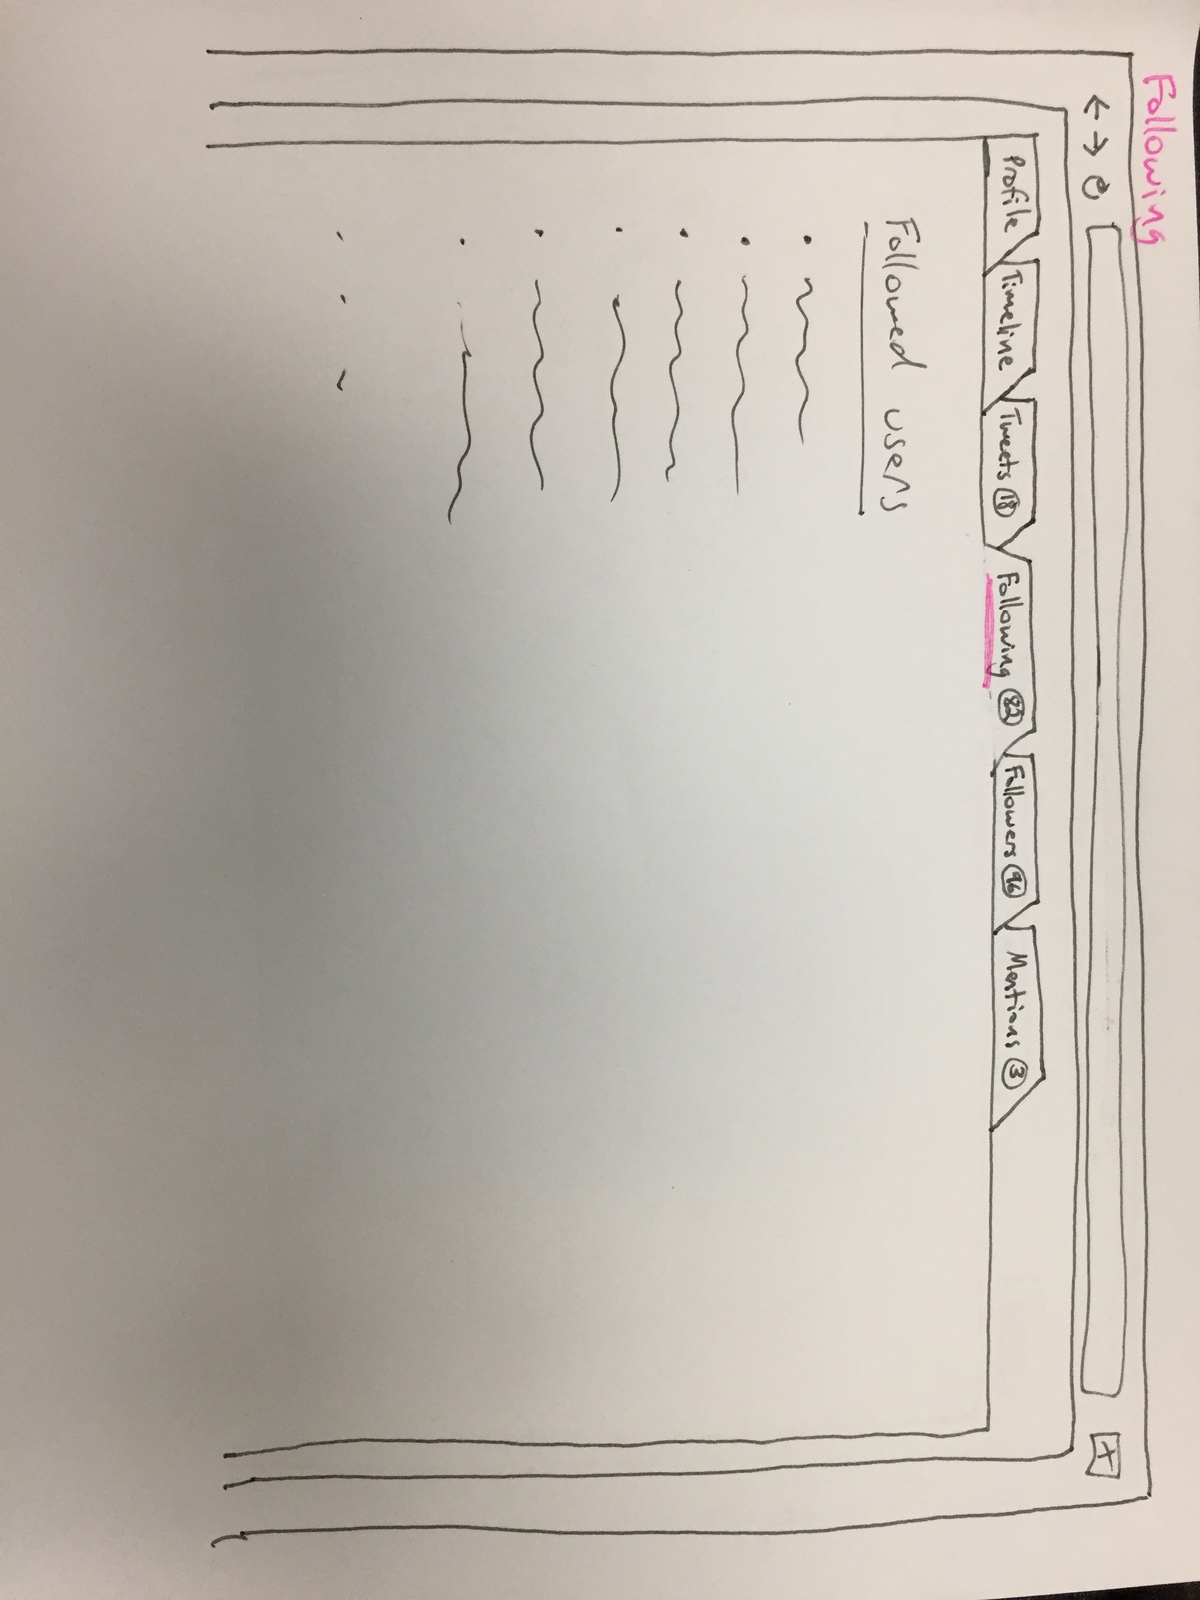 Following
Profile Timeline Tweets 18 Following 82 Followers 96 Mentions 3
Followed users